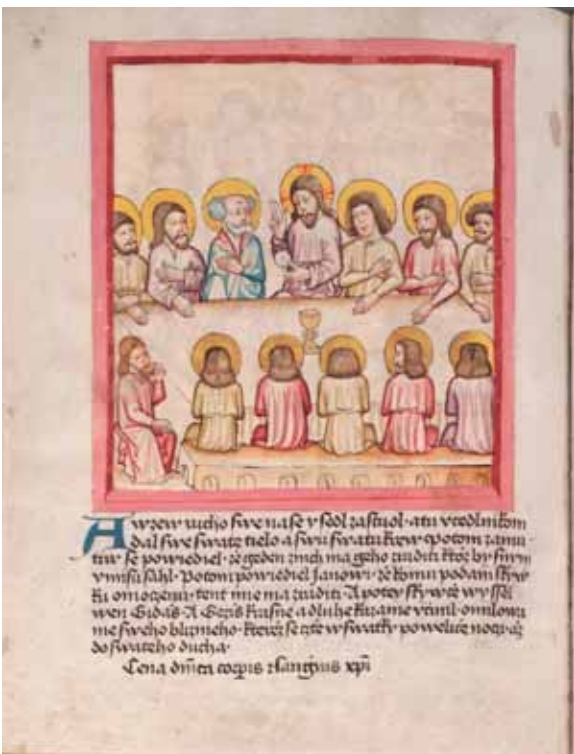 A wzew rucho swe nase y sedl zastuol · atu vcedlnikom
dal swe swate tielo a swu swatu krew · potom zamu
tiw se powiediel · ze geden znich ma geho zraditi ktoz by snym
vmisu sahl · Potom powiediel Janowi · ze komu podam skyw
ku omocenu · tent mne ma zraditi · A potey skywce wyssel
wen Gidas · A Gezis krasne a dluhe kazanie vcinil · omilowa
nie sweho blizneho · kterez se cte wswatky powelice noci · az
do swateho ducha ·
Cena dnica corpis z sangwis xpi